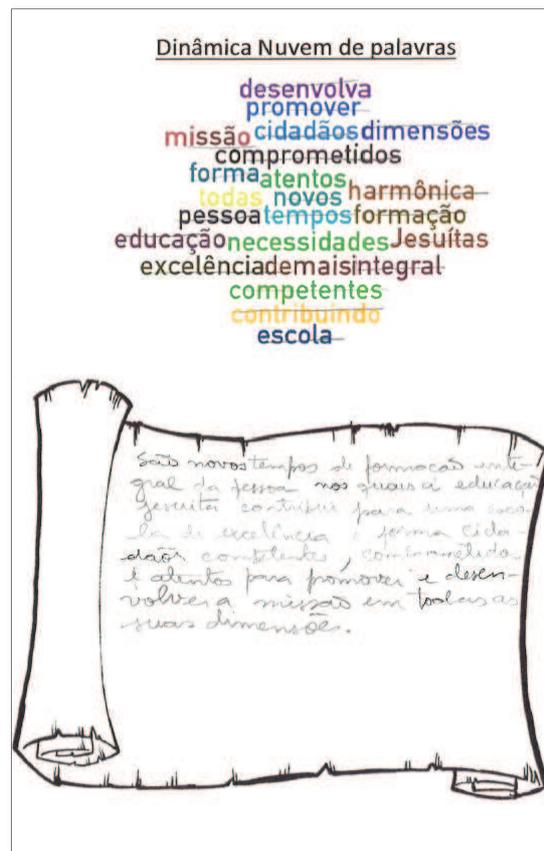 Dinâmica Nuvem de palavras
desenvolva
promover
missão cidadãos dimensões
comprometidos
forma atentos
todas novos harmônica
pessoa tempos formação
educação necessidades Jesuítas
excelência demais integral
competentes
contribuindo
escola
São novos tempos de formação inte-
gral da pessoa nos quais a educação
jesuíta contribui para uma esco-
la de excelência e forma cida-
dãos competentes, comprometidos
e atentos para promover e desen-
volver a missão em todas as
suas dimensões.